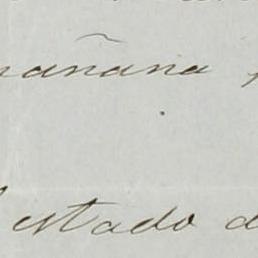 mañana
estado d